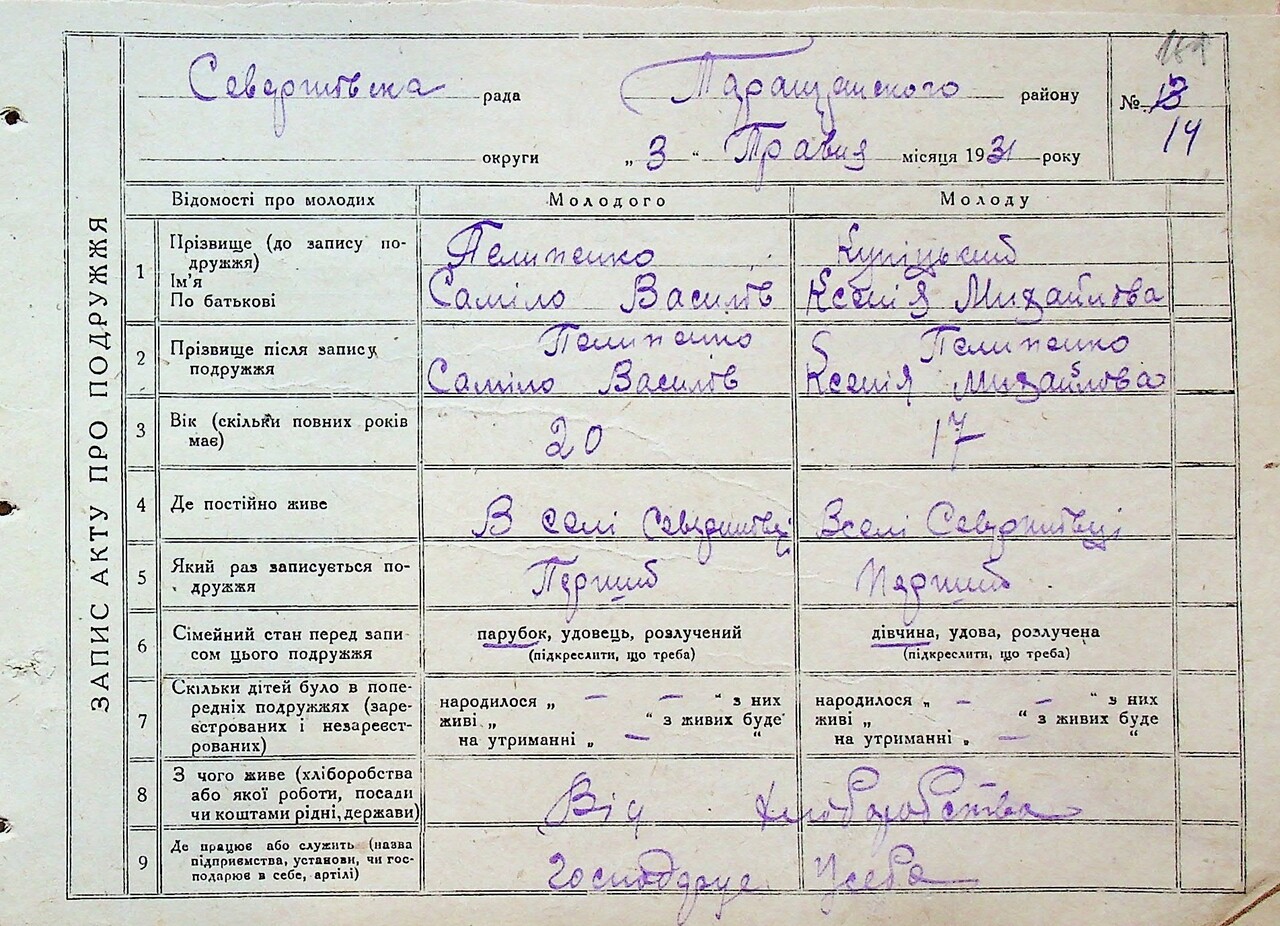 ЗАПИС АКТУ ПРО ПОДРУЖЖЯ
Северинівска рада Таращанского району
№ 13
14
округи „ 3 “ Травня місяця 1931 року
Відомості про молодих Молодого Молоду
1 Прізвище (до запису по-
дружжя)
Ім'я
По батькові
Пелипенко
Саміло Василів
Купіцький
Ксенія Михайлова
2 Прізвище після запису
подружжя
Пелипенко
Саміло Василів
Пелипенко
Ксенія Михайлова
3 Вік (скільки повних років
має)
20 17
4 Де постійно живе В селі Северинівці В селі Северинівці
5 Який раз записується по-
дружжя
Перший Перший
6 Сімейний стан перед запи
сом цього подружжя
парубок, удовець, розлучений
(підкреслити, що треба)
дівчина, удова, розлучена
(підкреслити, що треба)
7 Скільки дітей було в попе-
редніх подружжях (заре-
єстрованих і незареєст-
рованих)
народилося „ — — “ з них
живі „ “ з живих буде
на утриманні „ — “
народилося „ — — “ з них
живі „ “ з живих буде
на утриманні „ — “
8 З чого живе (хліборобства
або якої роботи, посади
чи коштами рідні, держави)
Від хліборобства
9 Де працює або служить (назва
підприємства, установи, чи гос-
подарює в себе, артілі)
Господарує Усеба